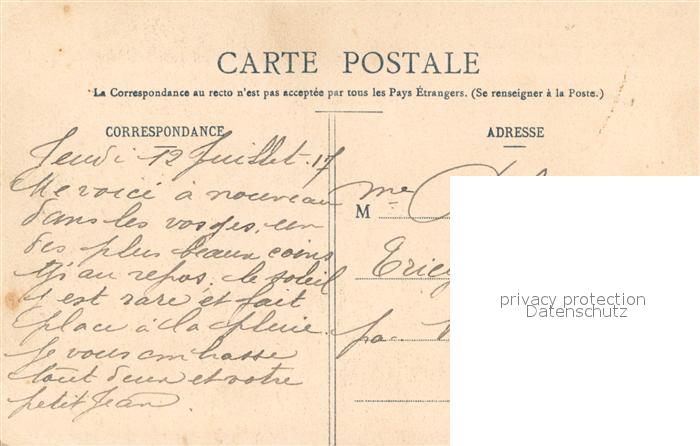 CARTE POSTALE
La Correspondance au recto n'est pas acceptée par tous les Pays Étrangers. (Se renseigner à la Poste.)
CORRESPONDANCE
Jeudi 12 Juillet 17
Me voici à nouveau
dans les vosges, un
des plus beaux coins
au repos, le soleil
y est rare et fait
place à la pluie.
Je vous embrasse
tout deux et votre
petit Jean.
ADRESSE
M
me
privacy protection
Datenschutz